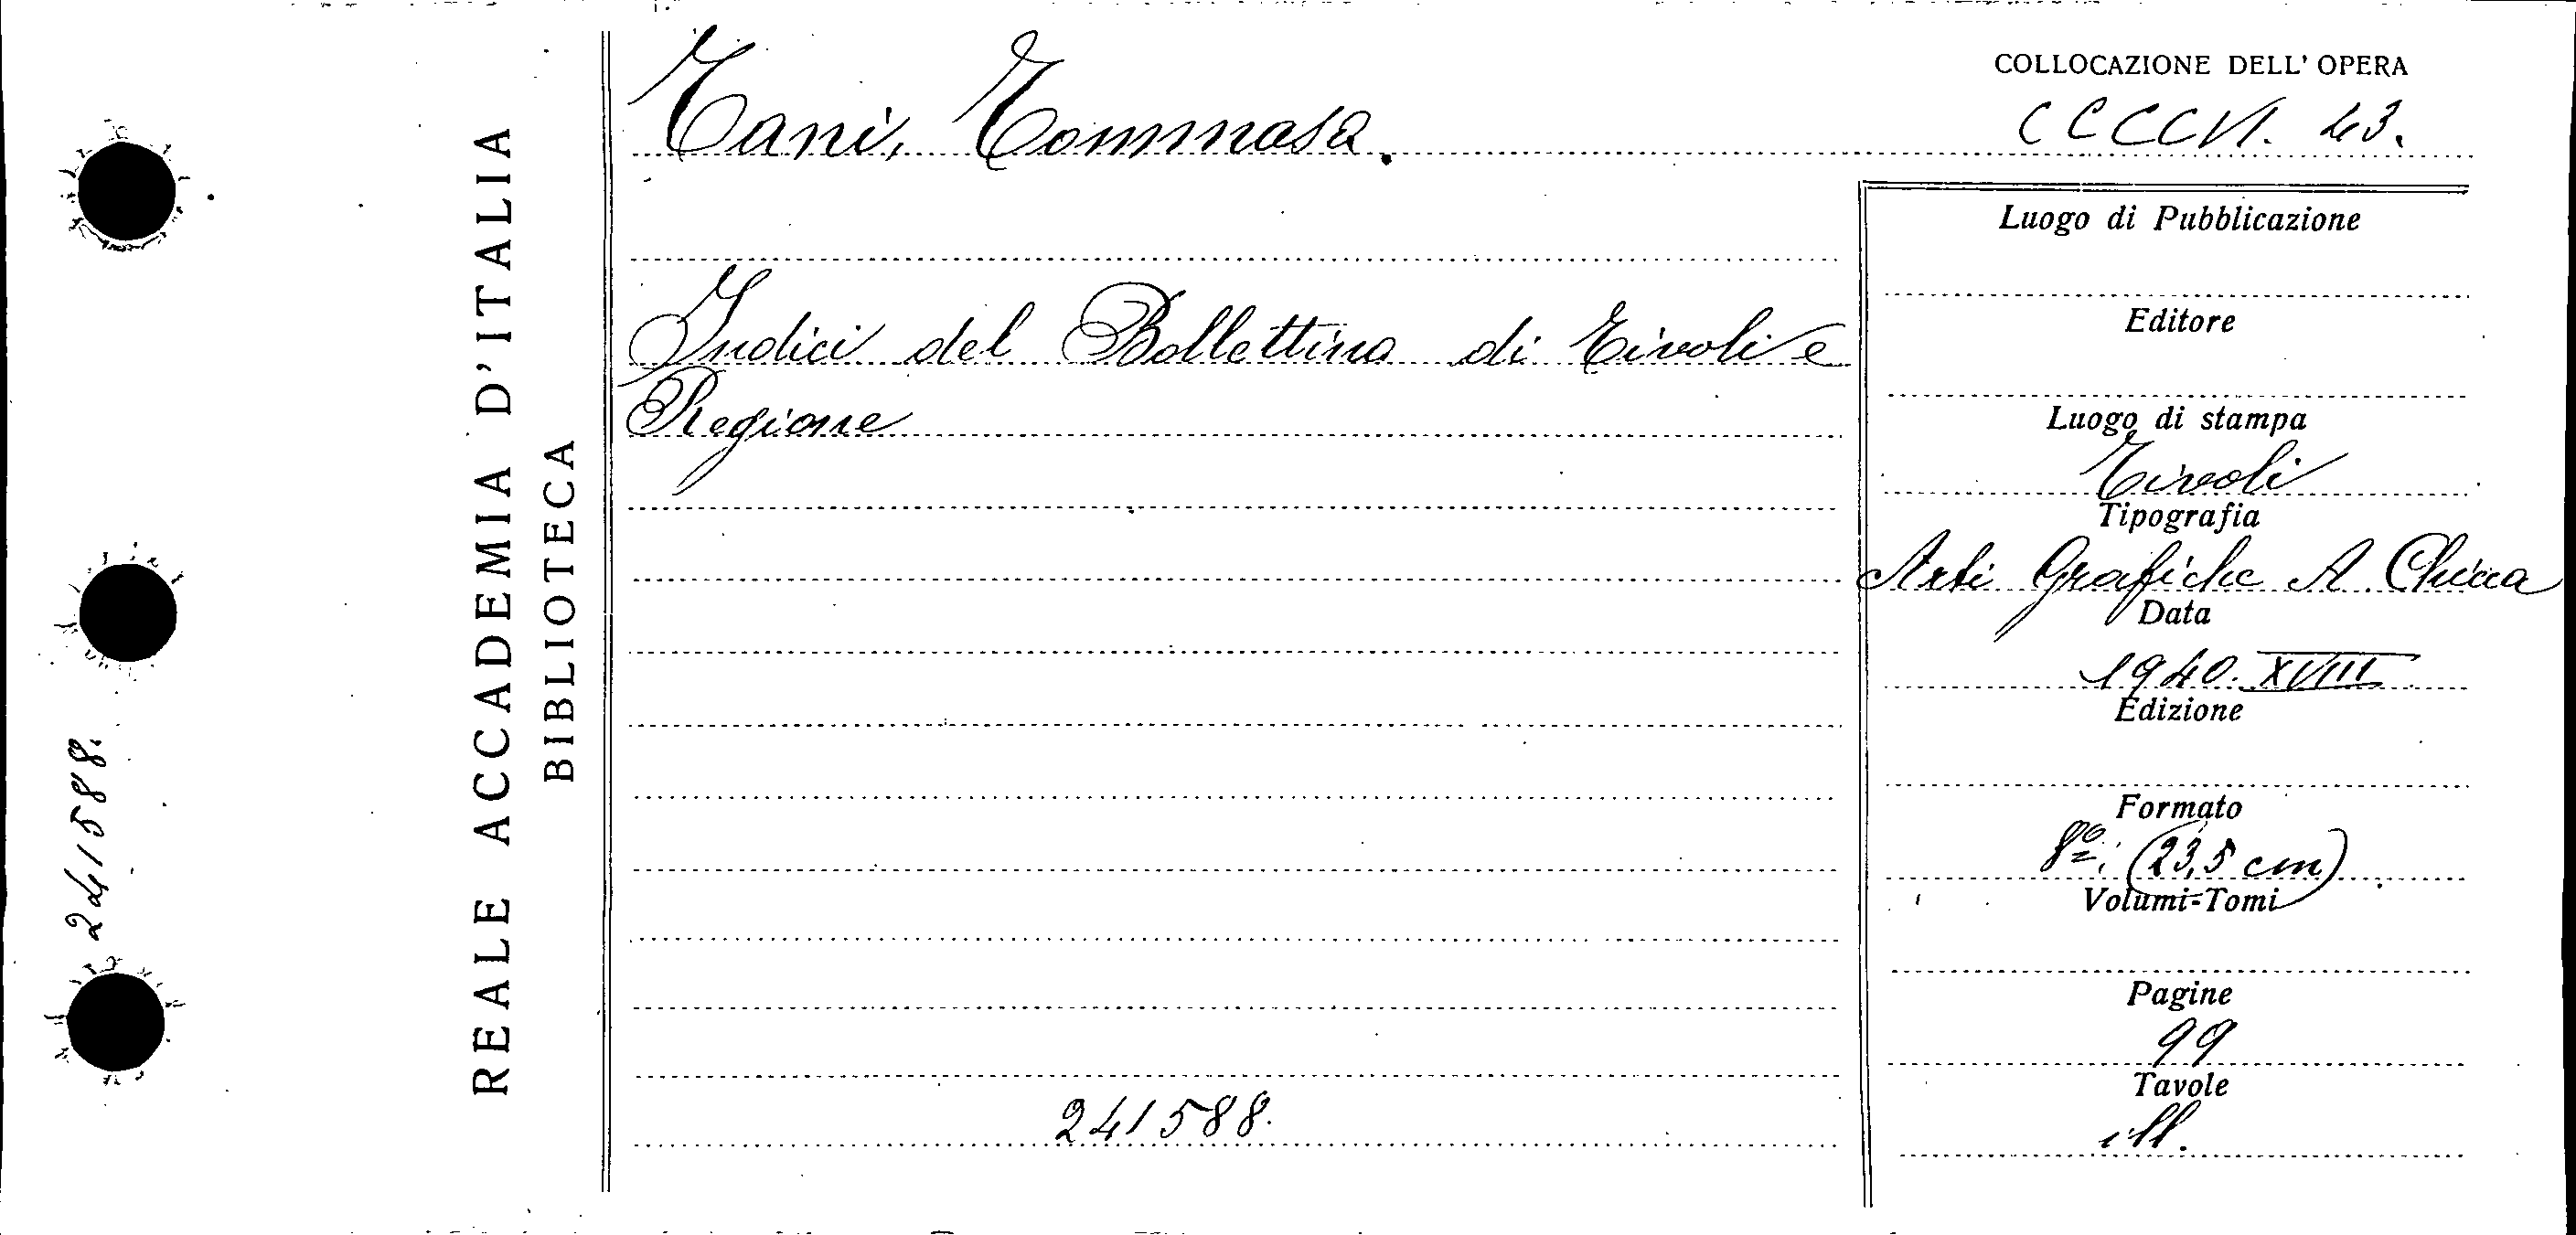 REALE ACCADEMIA D'ITALIA
BIBLIOTECA
241588.
Tani, Tommaso.
Indici del Bollettino di Tivoli e
Regione
241588.
COLLOCAZIONE DELL' OPERA
CCCCVI. 43.
Luogo di Pubblicazione
Editore
Luogo di stampa
Tivoli
Tipografia
Arti Grafiche A. Chicca
Data
1940. XVIII
Edizione
Formato
8º: (23,5 cm)
Volumi-Tomi
Pagine
99
Tavole
ill.